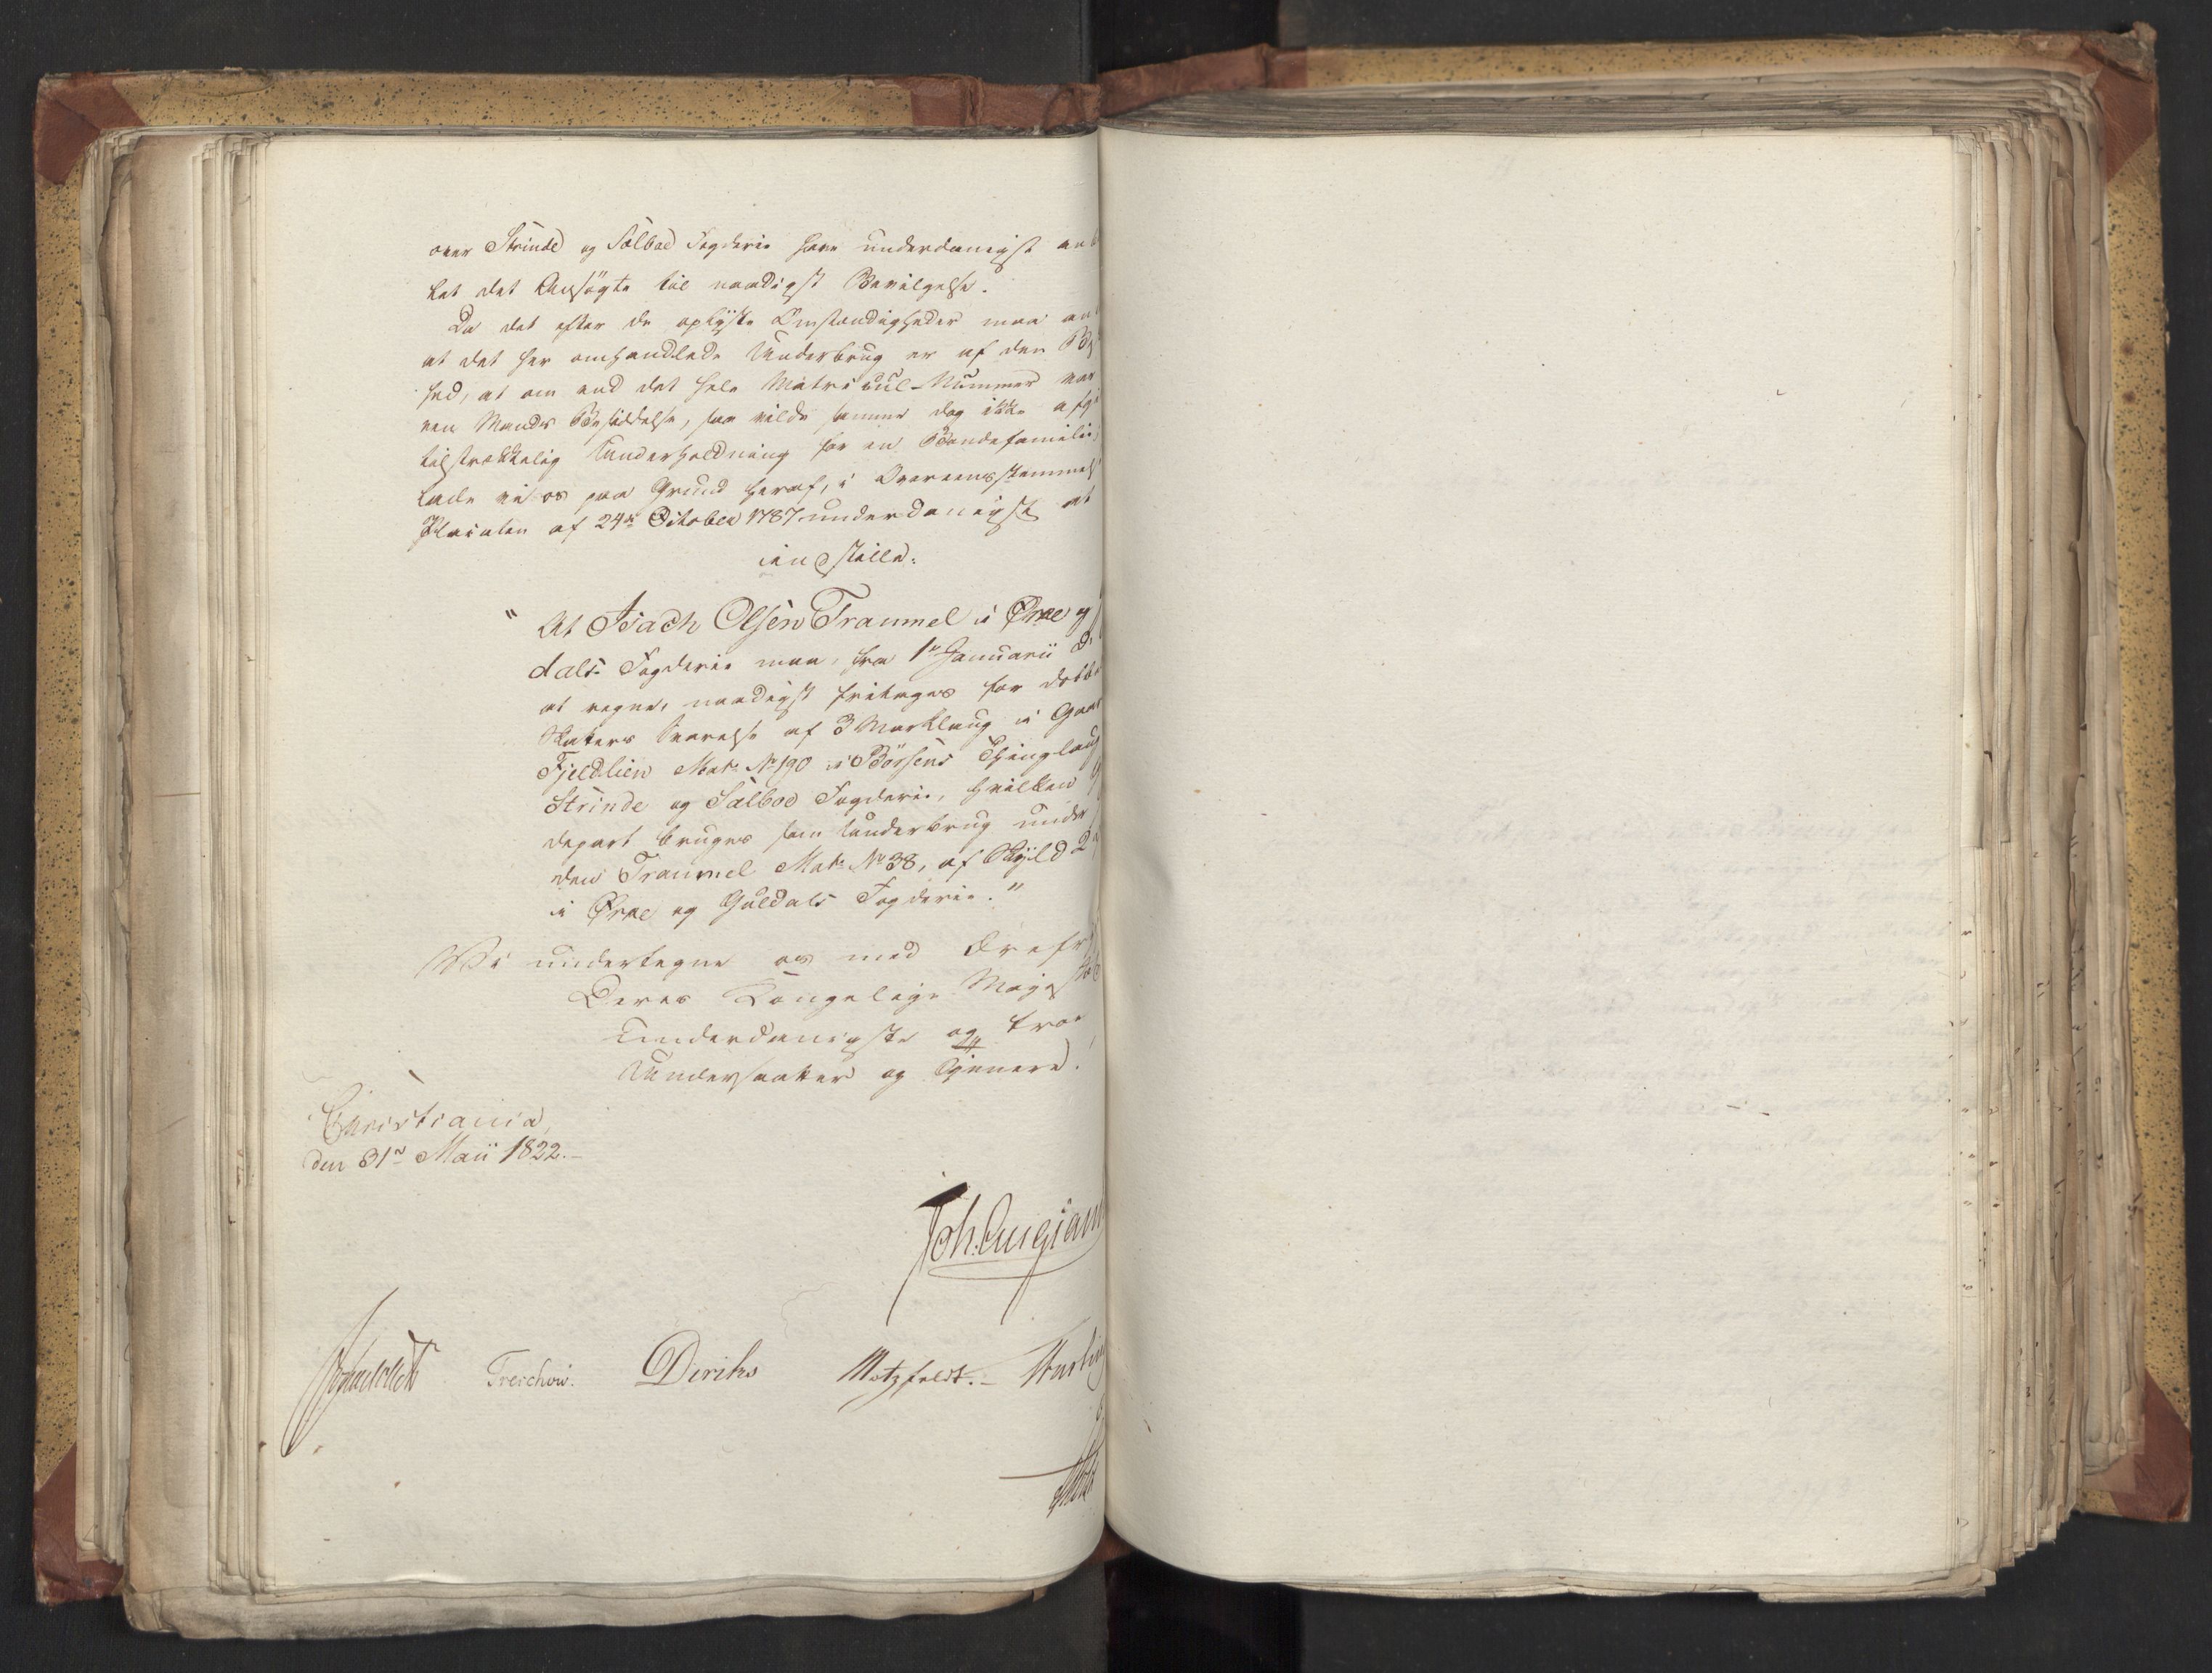 over Strinde og Selboe Fogderie have underdanigst an
let det Ansøgte til naadigst Bevilgelse.
Da det efter de oplyste Omstændigheder maa an
at det her omhandlede Underbrug er af den
hed, at om end det hele Matricul-Nummer var
een Mands Besiddelse, saa vilde samme dog ikke afgi
tilstrækkelig Underholdning for en Bondefamilie,
lade vi os paa Grund heraf, i Overeensstemmels
Placaten af 24de October 1787 underdanigst at
indstille:
"At Isach Olsen Traumel i Ørke og
dals Fogderie maa, fra 1ste Januarii
at regne, naadigst fritages for dobb
Skatters Svarelse af 3 Marklaug i Gaar
Fjeldlien Mat: No 190 i Børsens Thinglaug
Strinde og Sælboe Fogderie, hvilken
depart bruges som Underbrug under
den Traumel Mat: No 38, af Skyld 2
i Ørke og Guldals Fogderie."
Vi undertegne os med Ærefr
Deres Kongelige Majestæt
Underdanigste og troe
Undersaatter og Tjenere.
Christiania,
den 31te Maii 1822.-
Joh. Collett Treschow. Diriks Motzfeldt.-